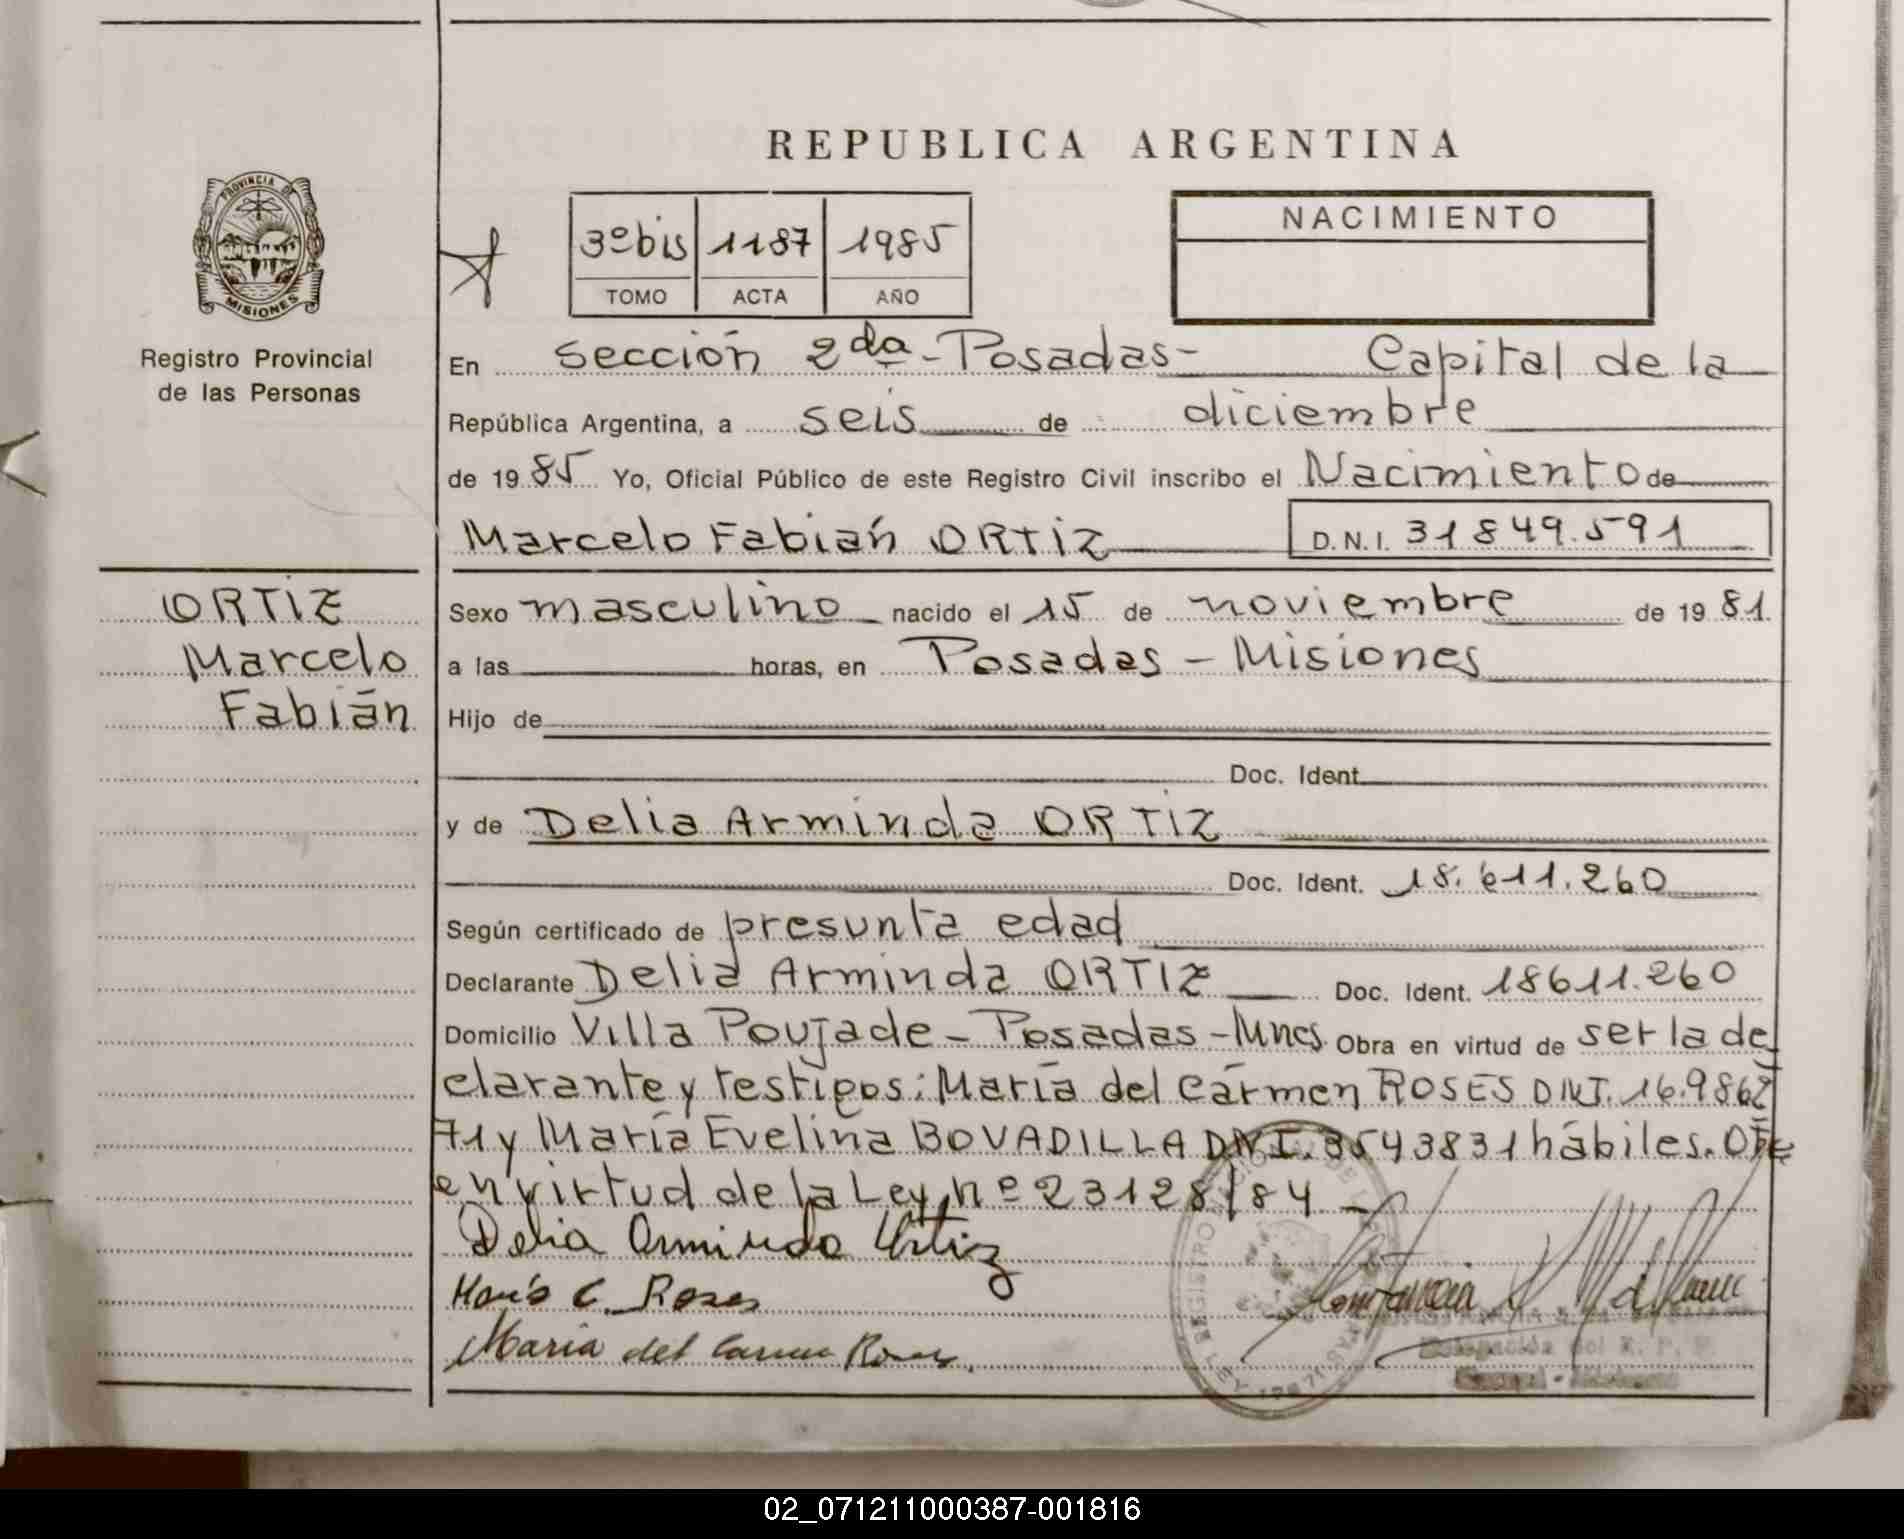 REPUBLICA ARGENTINA
PROVINCIA DE
MISIONES
Registro Provincial
de las Personas
3º bis 1187 1985
TOMO ACTA AÑO
NACIMIENTO
En Sección 2da - Posadas - Capital de la
República Argentina, a seis de diciembre
de 1985 Yo, Oficial Público de este Registro Civil inscribo el Nacimiento de
Marcelo Fabián ORTIZ D.N.I. 31849.591
ORTIZ
Marcelo
Fabián
Sexo masculino nacido el 15 de noviembre de 1981.
a las horas, en Posadas - Misiones
Hijo de
Doc. Ident.
y de Delia Arminda ORTIZ
Doc. Ident. 18.611.260
Según certificado de presunta edad
Declarante Delia Arminda ORTIZ Doc. Ident. 18611.260
Domicilio Villa Poujade - Posadas - Mnes Obra en virtud de ser la de
clarante y testigos: María del Cármen ROSES DNI. 16.9862
71 y María Evelina BOVADILLA DNI. 3543831 hábiles. Ofe
en virtud de la Ley nº 23128/84 -
Delia Arminda Ortiz
María C. Roses
María del Carmen Roses.
Delegación del R. P. P.
02_071211000387-001816